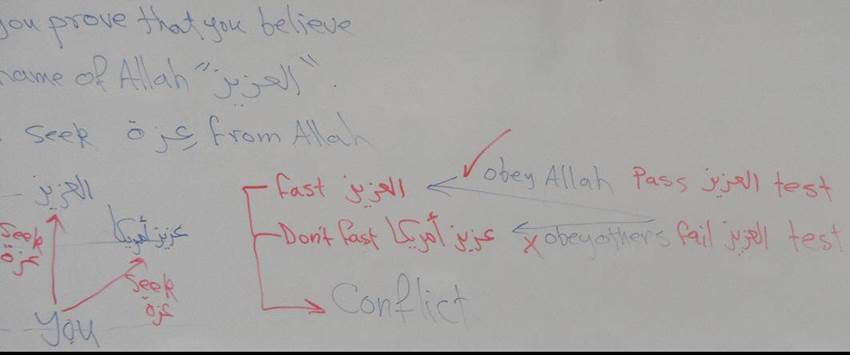 you prove that you believe
name of Allah "العزيز".
seek عزة from Allah
العزيز
Seek عزة
عزيز أمريكا
Seek عزة
You
Fast العزيز obey Allah Pass العزيز test
Don't fast عزيز أمريكا x obey others fail العزيز test
Conflict